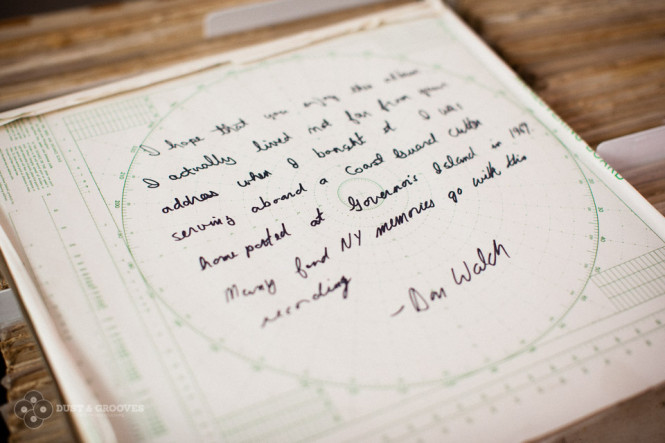 I hope that you enjoy this album
I actually lived not far from your
address when I bought it. I was
serving aboard a Coast Guard Cutter
home ported at Governor's Island in 1969.
Many fond NY memories go with this
recording
- Don Walch
DUST & GROOVES